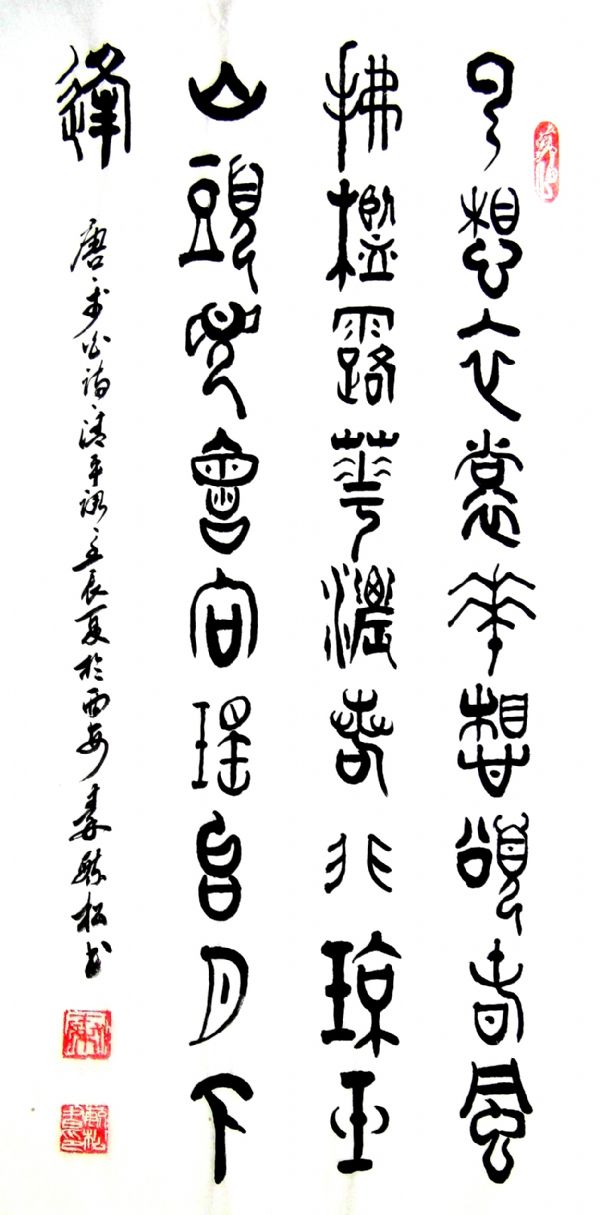 云想衣裳花想頌春風
拂檻露華濃若非琼玉
山頭見會向瑤台月下
逢
唐李白詩清平調壬辰夏於西安松書